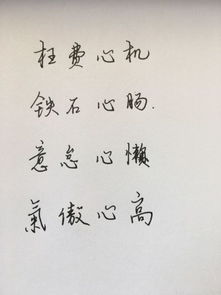 枉费心机
铁石心肠.
意怠心懒
氣傲心高